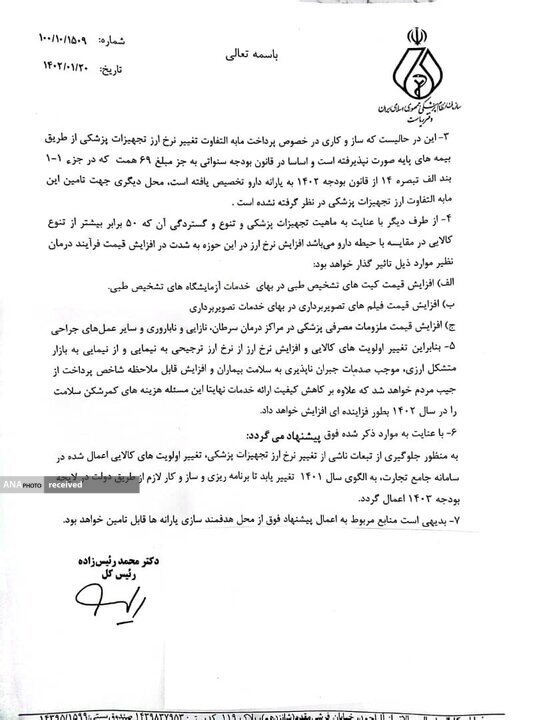 شماره: ۱۰۰/۱۰/۱۵۰۹
باسمه تعالی
تاریخ: ۱۴۰۲/۰۱/۲۰
سازمان نظام پزشکی جمهوری اسلامی ایران
دفتر ریاست
۳- این در حالیست که ساز و کاری در خصوص پرداخت مابه التفاوت تغییر نرخ ارز تجهیزات پزشکی از طریق
بیمه های پایه صورت نپذیرفته است و اساسا در قانون بودجه سنواتی به جز مبلغ ۶۹ همت که در جزء ۱-۱
بند الف تبصره ۱۴ از قانون بودجه ۱۴۰۲ به یارانه دارو تخصیص یافته است، محل دیگری جهت تامین این
مابه التفاوت ارز تجهیزات پزشکی در نظر گرفته نشده است .
۴- از طرف دیگر با عنایت به ماهیت تجهیزات پزشکی و تنوع و گستردگی آن که ۵۰ برابر بیشتر از تنوع
کالایی در مقایسه با حیطه دارو می‌باشد افزایش نرخ ارز در این حوزه به شدت در افزایش قیمت فرآیند درمان
نظیر موارد ذیل تاثیر گذار خواهد بود:
الف) افزایش قیمت کیت های تشخیص طبی در بهای خدمات آزمایشگاه های تشخیص طبی.
ب) افزایش قیمت فیلم های تصویربرداری در بهای خدمات تصویربرداری
ج) افزایش قیمت ملزومات مصرفی پزشکی در مراکز درمان سرطان، نازایی و ناباروری و سایر عمل‌های جراحی
۵- بنابراین تغییر اولویت های کالایی و افزایش نرخ ارز از نرخ ارز ترجیحی به نیمایی و از نیمایی به بازار
متشکل ارزی، موجب صدمات جبران ناپذیری به سلامت بیماران و افزایش قابل ملاحظه شاخص پرداخت از
جیب مردم خواهد شد که علاوه بر کاهش کیفیت ارائه خدمات نهایتا این مسئله هزینه های کمرشکن سلامت
را در سال ۱۴۰۲ بطور فزاینده ای افزایش خواهد داد.
۶- با عنایت به موارد ذکر شده فوق پیشنهاد می گردد:
به منظور جلوگیری از تبعات ناشی از تغییر نرخ ارز تجهیزات پزشکی، تغییر اولویت های کالایی اعمال شده در
سامانه جامع تجارت، به الگوی سال ۱۴۰۱ تغییر یابد تا برنامه ریزی و ساز و کار لازم از طریق دولت در لایحه
بودجه ۱۴۰۳ اعمال گردد.
ANAPHOTO received
۷- بدیهی است منابع مربوط به اعمال پیشنهاد فوق از محل هدفمند سازی یارانه ها قابل تامین خواهد بود.
دکتر محمد رئیس‌زاده
رئیس کل